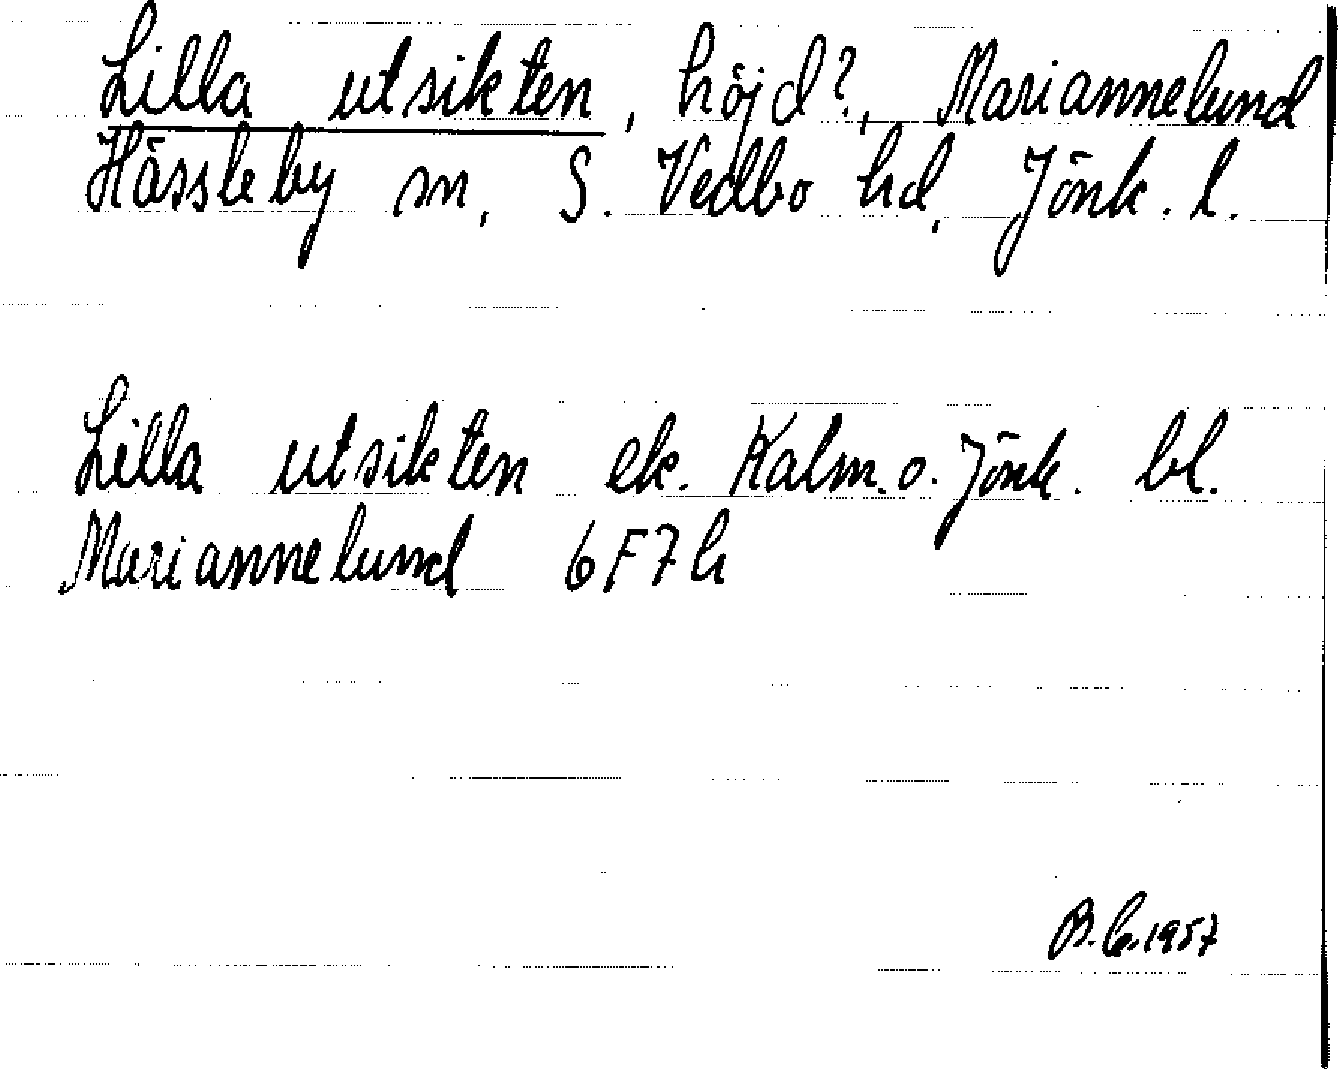 Lilla utsikten, höjd?, Mariannelund
Hässleby sn, S. Vedbo hd, Jönk. l.
Lilla utsikten ek. Kalm. o. Jönk. bl.
Mariannelund 6F7h
1957